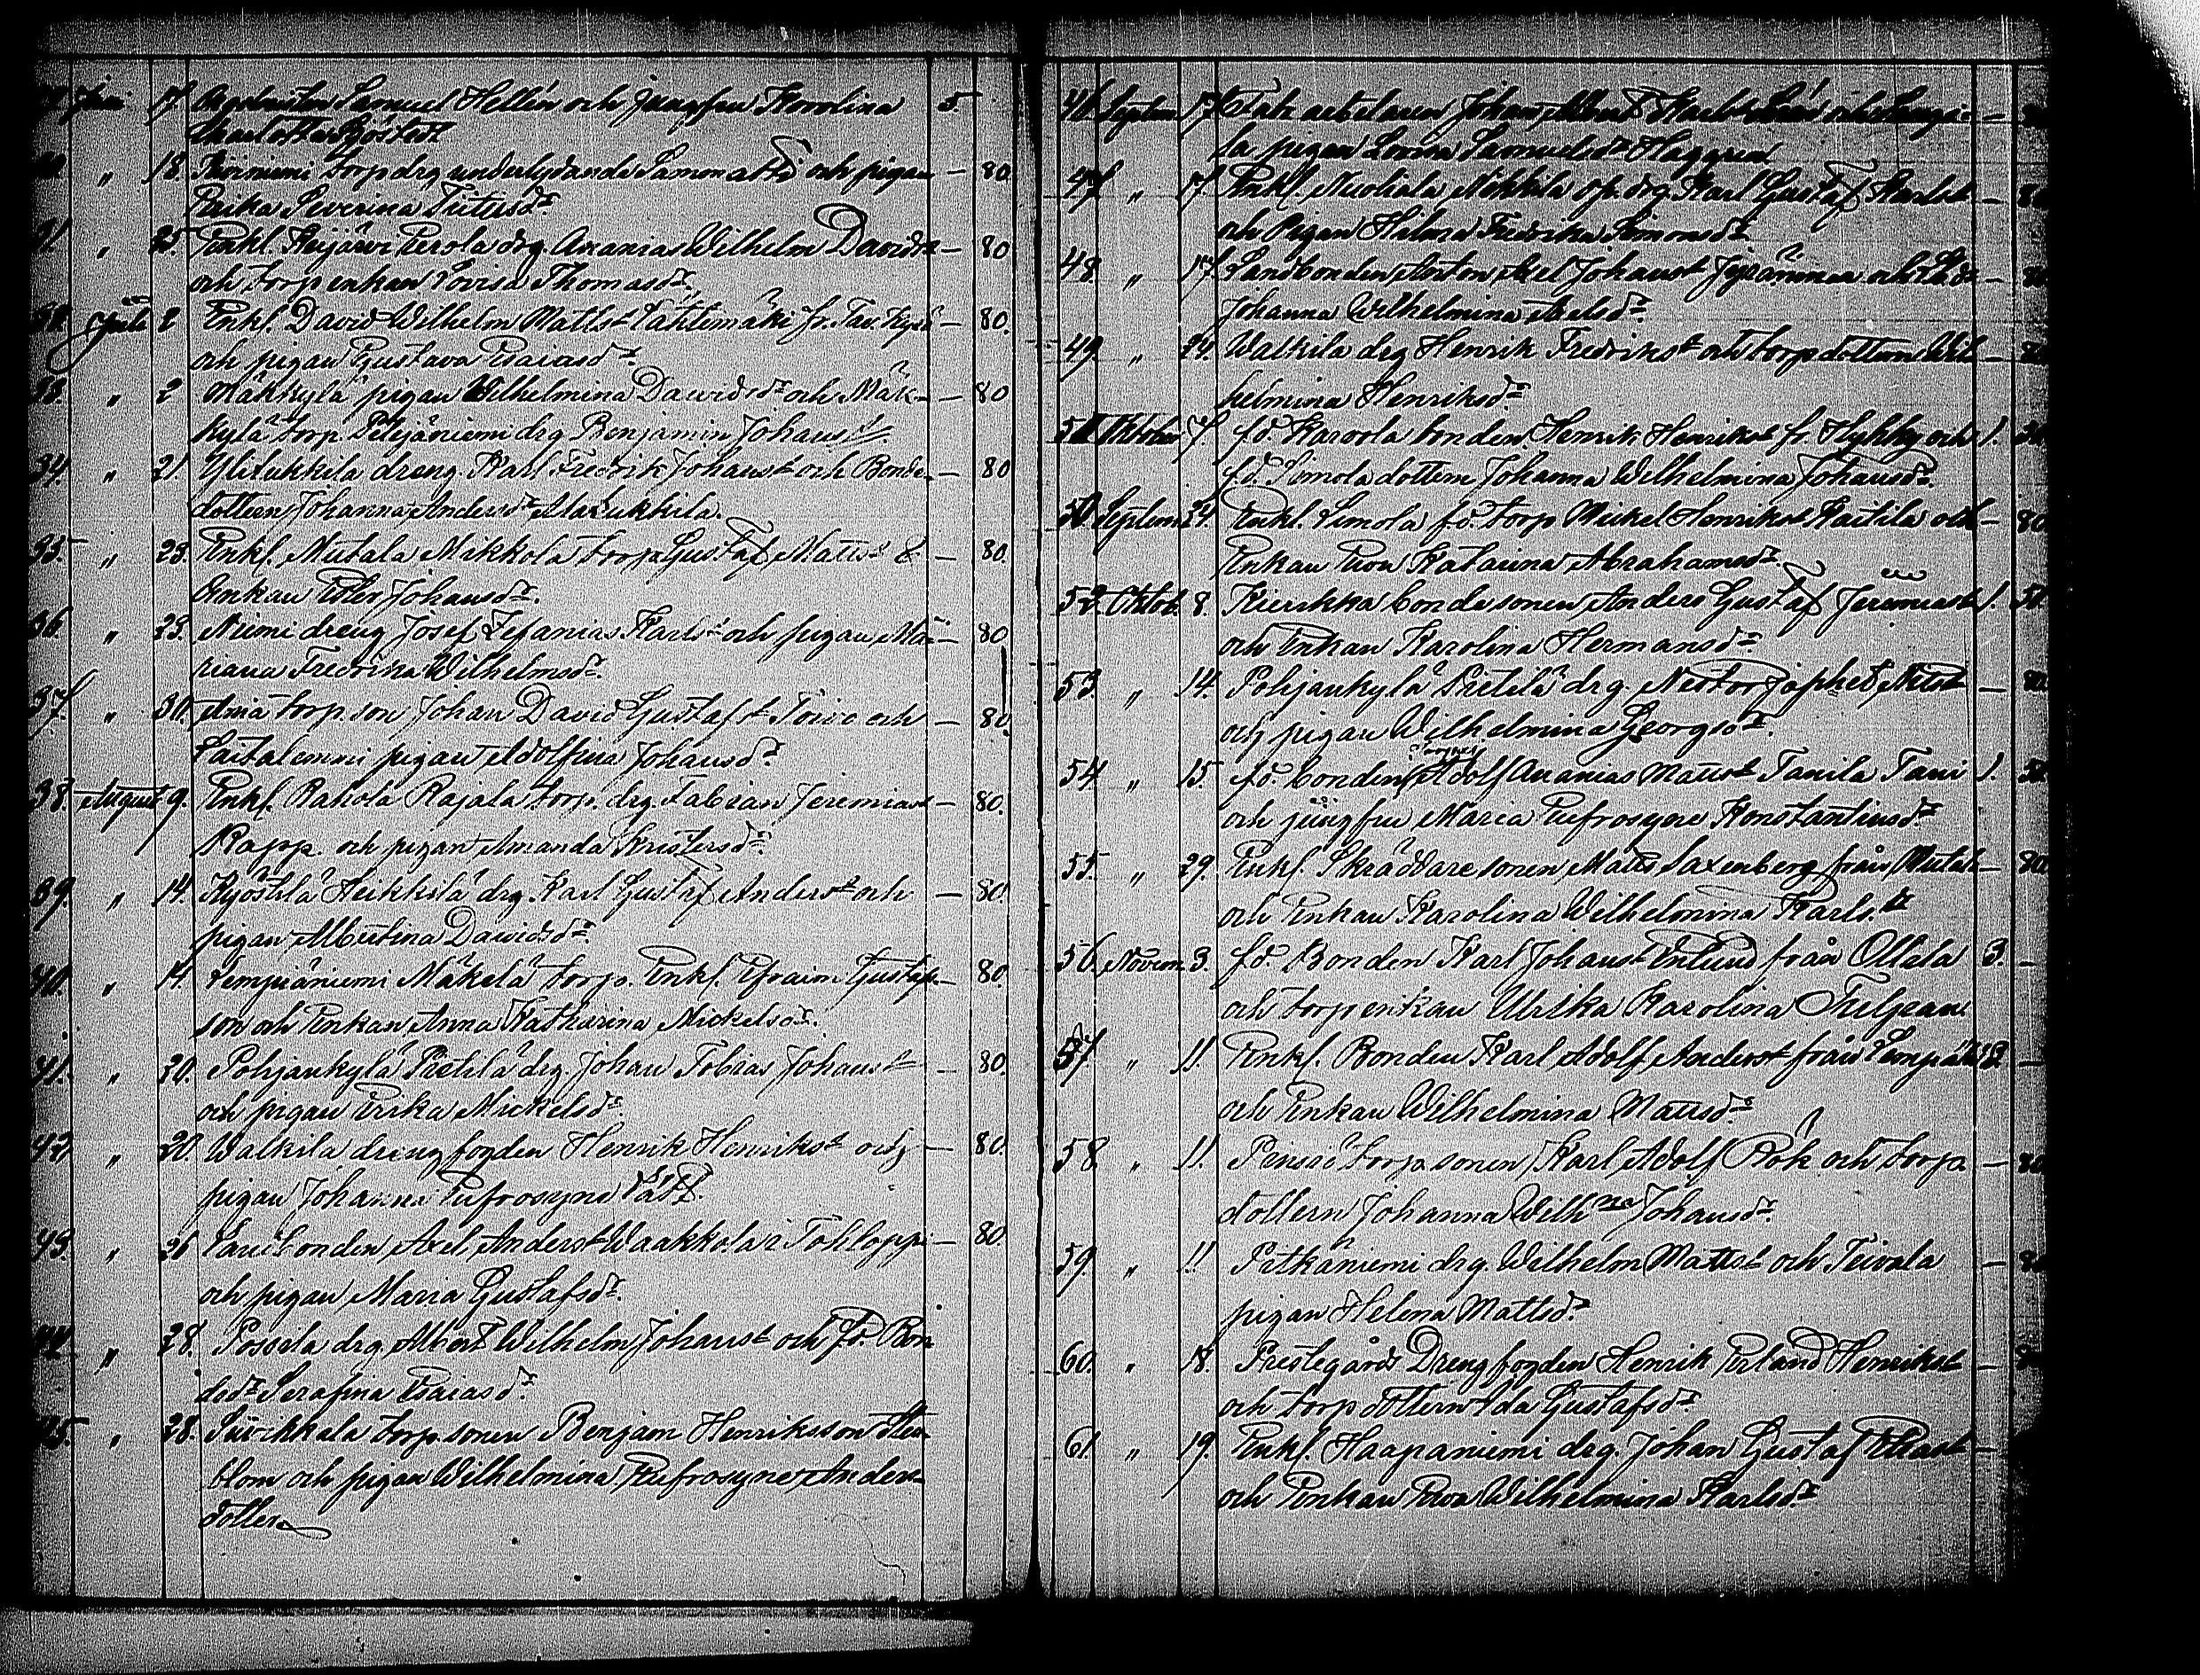 Juni 17 Samuel Hellén och jungfru Karolina 5
18. torp drg underlydande och pigan — 80
Erika Severina
" 25. Enkl. Heijärvi Perola drg. Ananias Wilhelm Davidst — 80
och torp enkan Lovisa Thomasdr.
32. Juli 2 Enkl. David Wilhelm Mattst Lähtemäki fr. Tav. Kyrö — 80.
och pigan Gustava Esaiasdr
33. " 2 Mäkkylä pigan Wilhelmina Davidsdr och Mäk- — 80
kylä torp. Petejäniemi drg Benjamin Johanst.
34. " 21. Ylitukkila dreng. Karl Fredrik Johanst och Bonde- — 80
dottern Johanna Andersdr Alatukkila.
35. " 23. Enkl. Mutala Mikkola torp. Gustaf Mattst & — 80.
Enkan Ester Johansdr.
36. " 23. Niemi dreng Josef Zefanias Karlst och pigan Ma- — 80
riana Fredrika Wilhelmsdr.
37. " 30. torp. son Johan David Gustafst Toivo och — 80.
Laitalemmi pigan Adolfina Johansdr.
38. August 9. Enkl. Rahola Rajala torp. drg. Fabian Jeremiast — 80.
Rapp. och pigan Amanda Kristersdr.
39. " 14. Kyöstilä Heikkilä drg. Karl Gustaf Anderst och — 80.
pigan Albertina Davidsdr.
40. " 14. Lempiäniemi Mäkelä torp. Enkl. Efraim Gustafs- — 80.
son och Enkan Anna Katharina Mickelsdr.
41. " 20. Pohjankylä Pietilä drg. Johan Tobias Johanst — 80.
och pigan Erika Mickelsdr.
42. " 20. Walkila drengfogden Henrik Henrikst och — 80.
pigan Johanna Eufrosyne Lätt.
43. " 26 Landbonden Axel Anderst Waakkola i Tohloppi — 80
och pigan Maria Gustafsdr.
44. " 28. Possila drg. Albert Wilhelm Johanst och fd. Bon-
dedr Serafina Esaiasdr.
45. " 28. Siivikkala torp. sonen Benjam Henriksson Sten-
blom och pigan Wilhelmina Eufrosyne Anders-
dotter
46. Septem 17. Johan Albert Karlst och —
pigan Lovisa Samuelsdr Haggren
47 " 17. Enkl. Mikkila drg. Karl Gustaf Karlst — 80
och Pigan Hilma Fredrika Simonsdr.
48. " 17. Landbonden Anton Axel Johanst och —
Johanna Wilhelmina Axelsdr.
49. " 24. Walkila drg Henrik Fredrikst och torp dottern Wil- — 80
helmina Henriksdr.
51 Oktober 7. fd. Karoola bonden Henrik Henrikst fr. Hyhky och 1.
fd. Simola dottern Johanna Wilhelmina Johansdr.
50 Septem 24. Enkl. Simola fd. torp Mickel Henrikst Kaitila och — 80.
Enkan Eva Katarina Abrahamsdr.
52. Oktob. 8. Kierikka bonde sonen Anders Gustaf Jeremiast 1.
och Enkan Karolina Hermansdr
53 " 14. Pohjankylä Pietilä drg. Nestor Japhet — 80.
och pigan Wilhelmina Georgsdr.
54 " 15. fd. bonden Adolf Ananias Mattst Tanila 1.
och jungfru Maria Eufrosyne Konstantinsdr.
55. " 29. Enkl. Skräddare sonen Matts Saxenberg från Mutala — 80.
och Enkan Karolina Wilhelmina Karlsdr
56. Novem 3. fd. Bonden Karl Johanst Enlund från Ollila 3. —
och torp enkan Ulrika Karolina
57. " 11. Enkl. Bonden Karl Adolf Anderst från Lempäälä 3 —
och Enkan Wilhelmina Mattsdr
58. " 11. Pinsiö torp. sonen Karl Adolf Rök och torp. — 80
dottern Johanna Wilhna Johansdr.
59. " 11 Petkäniemi drg. Wilhelm Mattst och Teivala — 80
pigan Helena Mattsdr
60. " 18 Prestegårds Drengfogden Henrik Erland Henrikst —
och torp dottern Ida Gustafsdr
61. " 19. Enkl. Haapaniemi drg. Johan Gustaf —
och Enkan Eva Wilhelmina Karlsdr